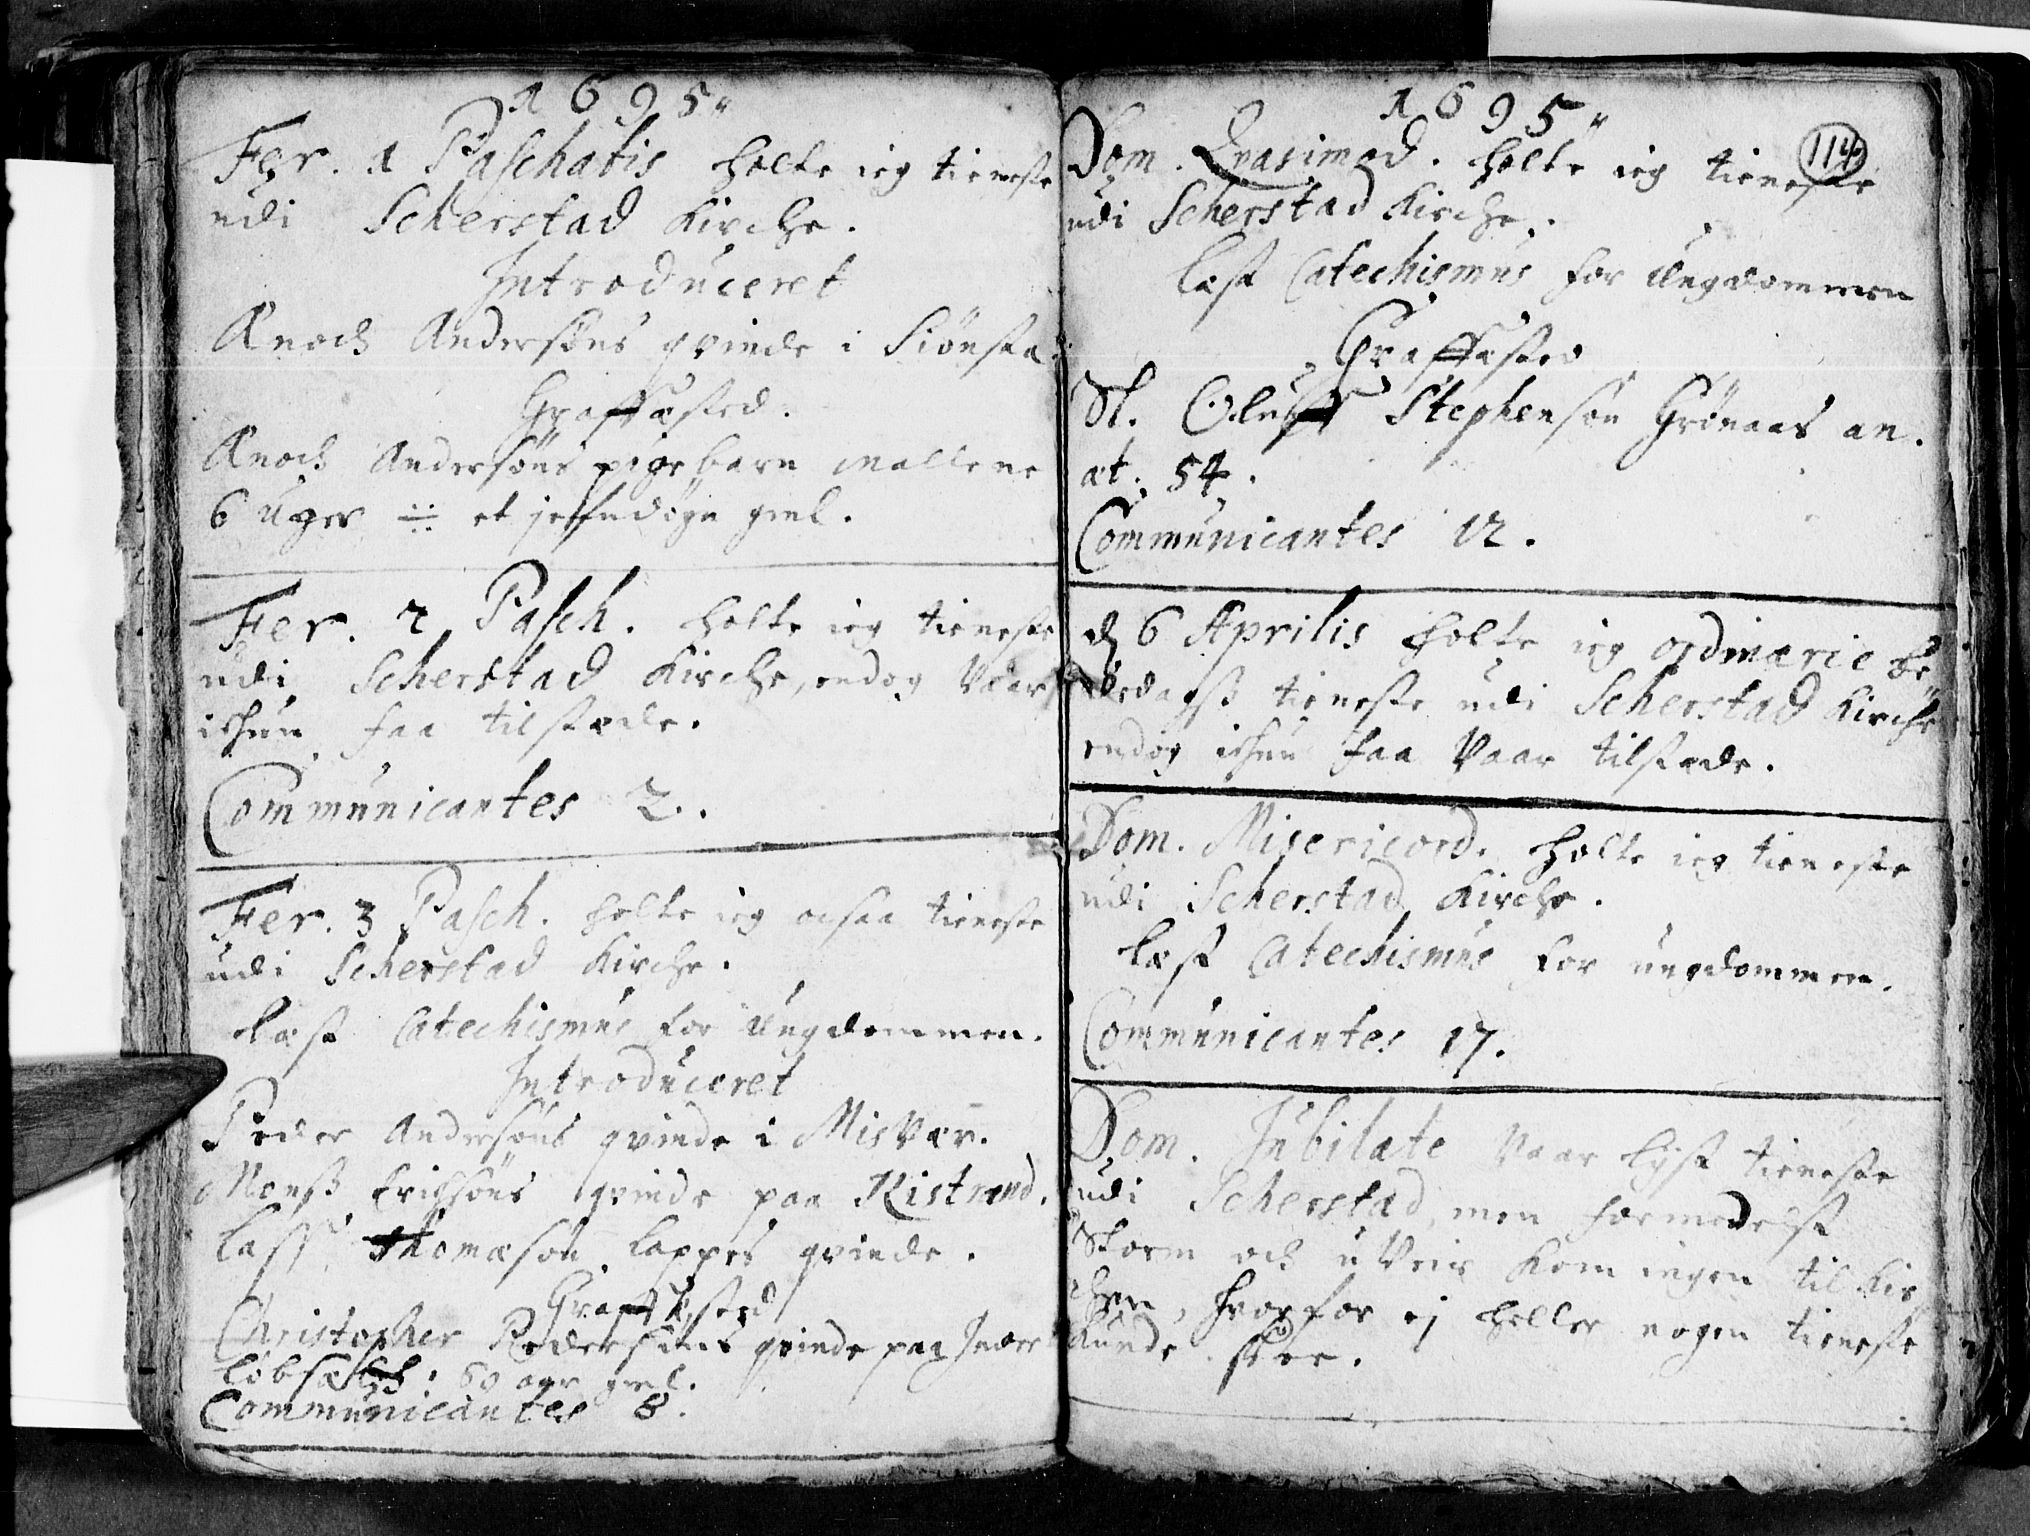 1695
Fer. 1 Paschatis holte ieg tieneste
udi Scherstad Kirche.
Introduceret
Ænoch Andersøns qvinde i Siønsta
Graffæsted.
Ænoch Andersøns pigebarn Mallene
6 Uger ÷ et jeffndøgn gml.
Fer. 2 Pasch. holte ieg tieneste
udi Scherstad Kirche, endog Vaar
ichun faa tilstæde.
Communicantes 2.
Fer. 3 Pasch. holte ieg ocsaa tieneste
udi Scherstad Kirche.
læst Catechismus for Ungdommen.
Introduceret
Peder Andersøns qvinde i Misvær.
Monss Erichsøns qvinde paa Kistrand.
Lass Thomæsøn Lappes qvinde.
Graffæsted
Christopher Pedersøns qvinde paa Inder
løbsæth, 60 aar gml.
Communicantes 8.
1695
114
Dom. Qvasimod. holte ieg tieneste
udi Scherstad Kirche.
læst Catechismus for Ungdommen
Graffæsted
Sl. Oluff Stephensøn Grønaas an.
æt. 54.
Communicantes 12.
d. 6 Aprilis holte ieg ordinarie be
dedagss tieneste udi Scherstad Kirche
endog ichun faa Vaar tilstæde.
Dom. Misericord. holte ieg tieneste
udi Scherstad Kirche.
læst Catechismus for ungdommen.
Communicantes 17.
Dom. Jubilate Vaar lyst tieneste
udi Scherstad, men formedelst
Storm och uVeir Kom ingen til Kir
chen, hvorfor ej heller nogen tieneste
Kunde skee.